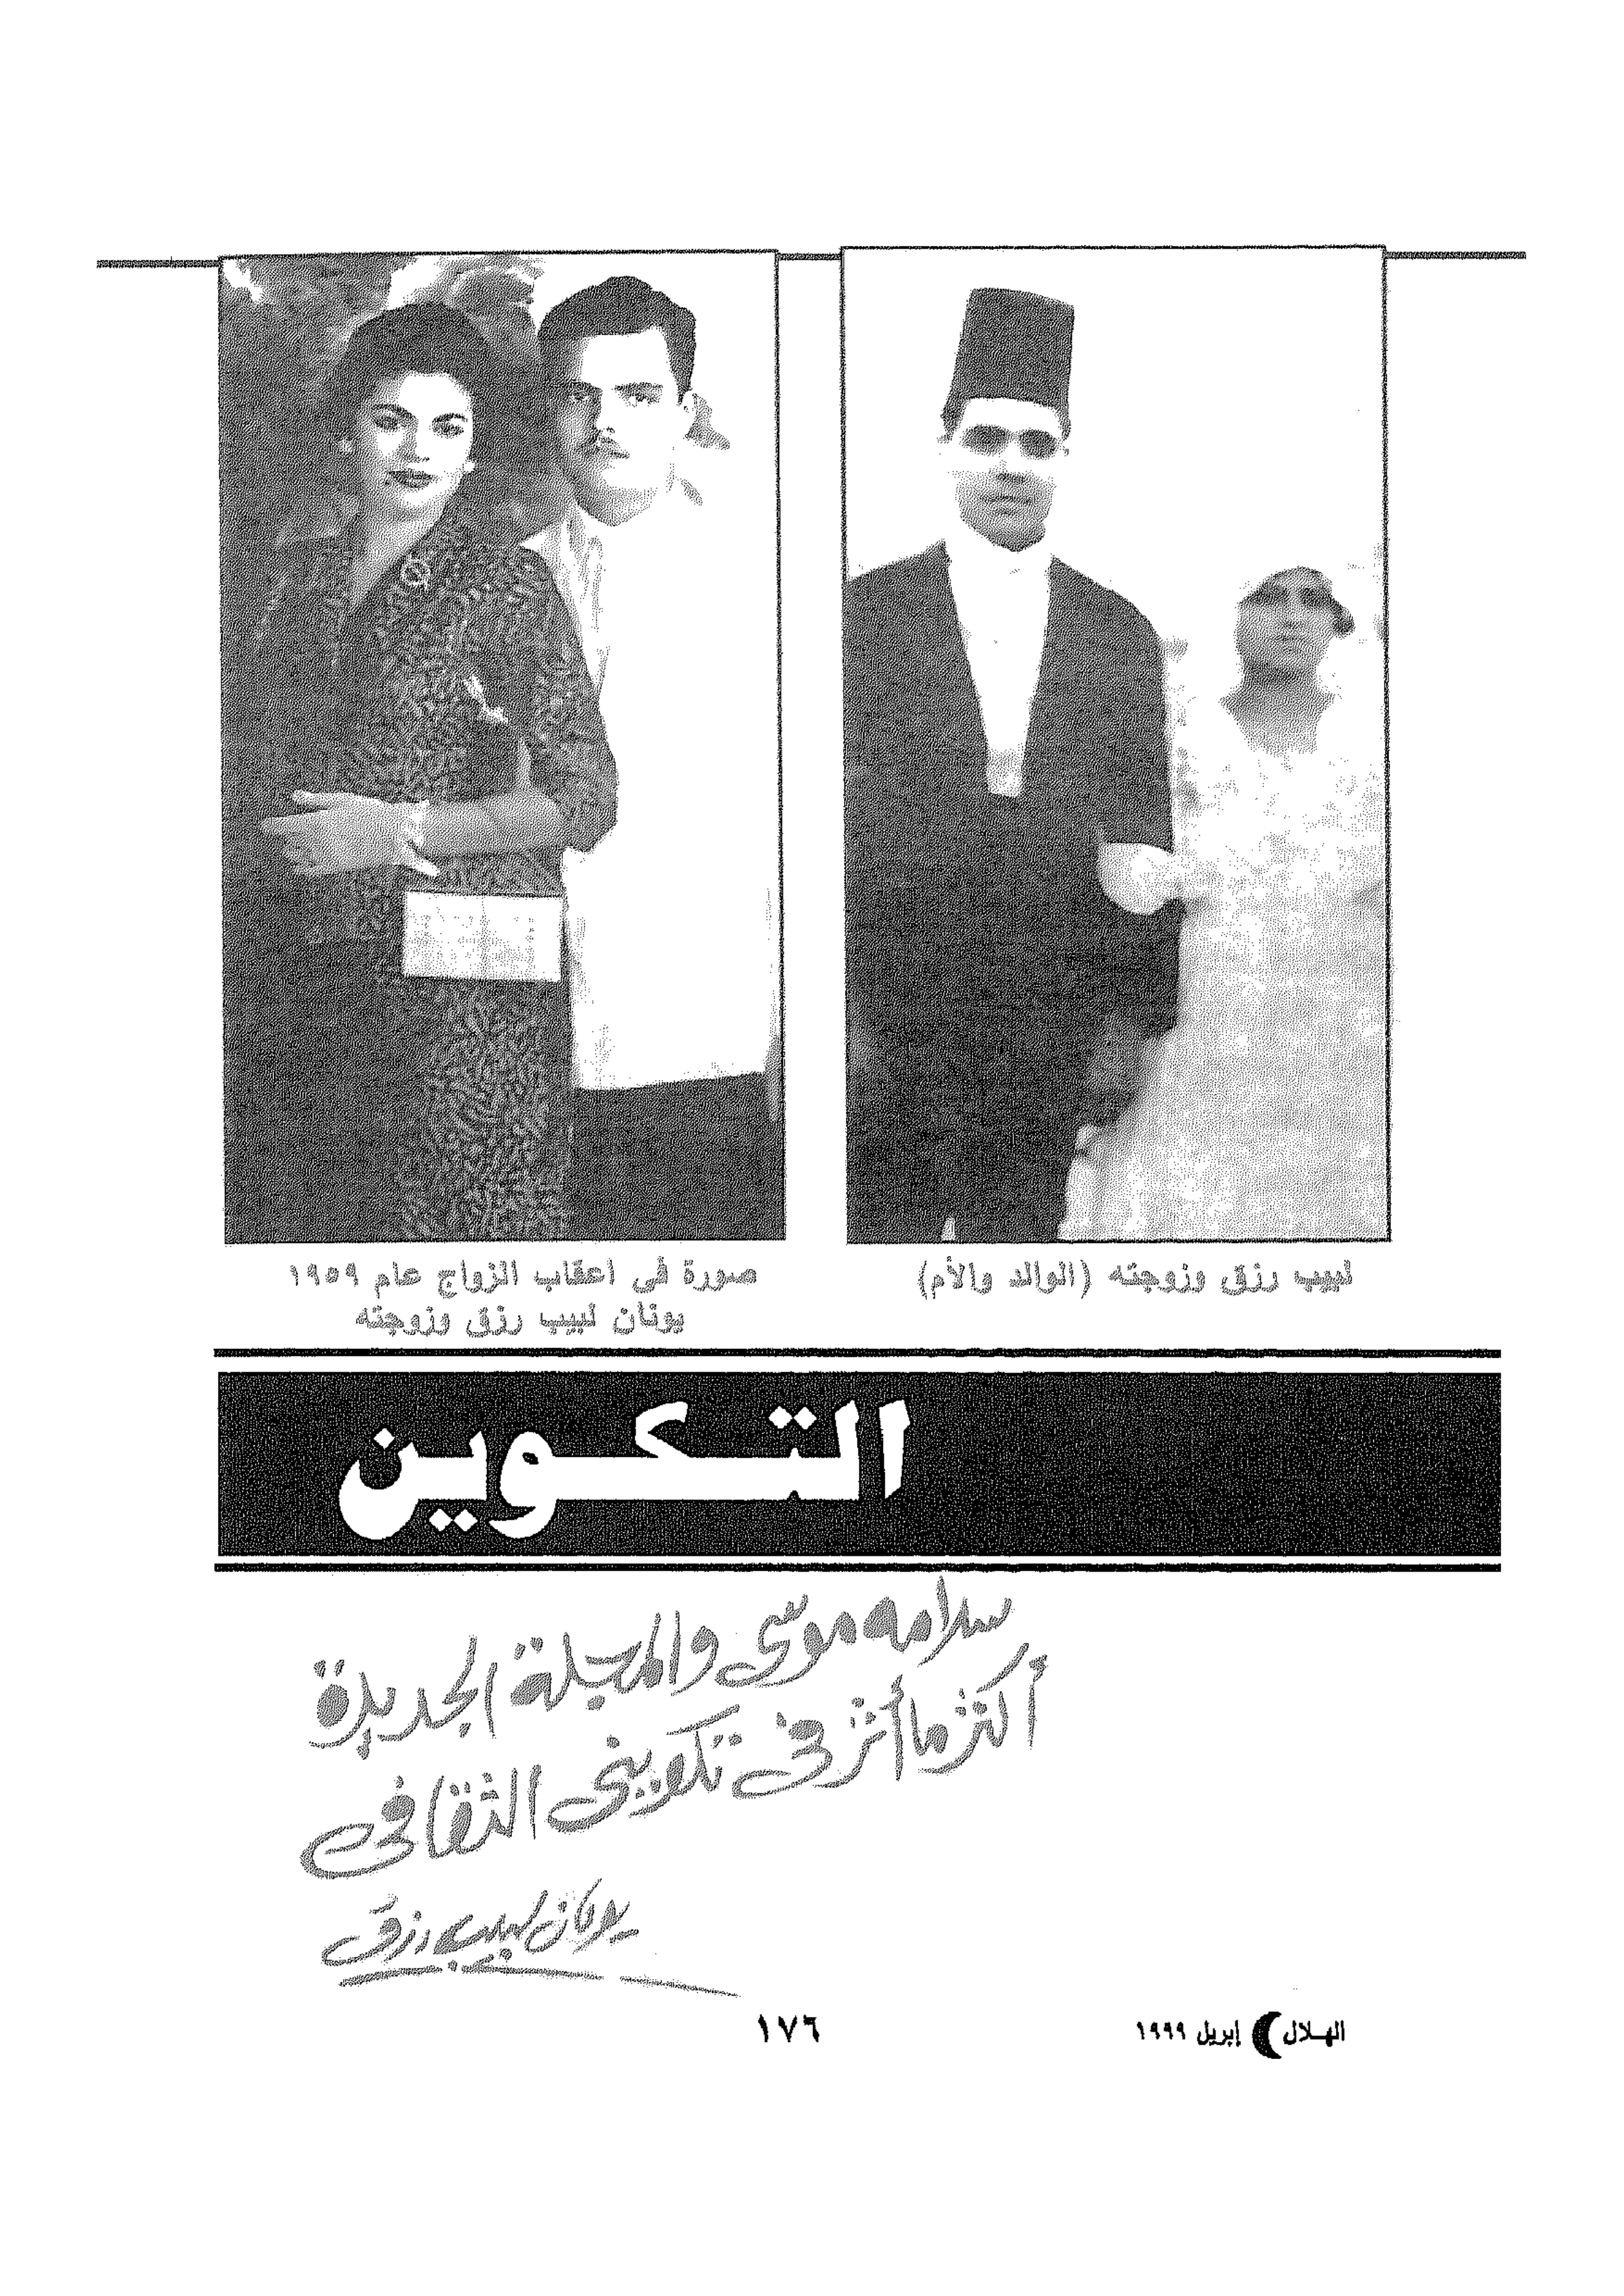 لبيب رزق وزوجته (الوالد والأم)
صورة في اعقاب الزواج عام ١٩٥٩
يونان لبيب رزق وزوجته
التكوين
سلامه موسى والمجلة الجديدة
أكثر ما أثر فى تكوينى الثقافى
يونان لبيب رزق
الهلال إبريل ١٩٩٩
١٧٦